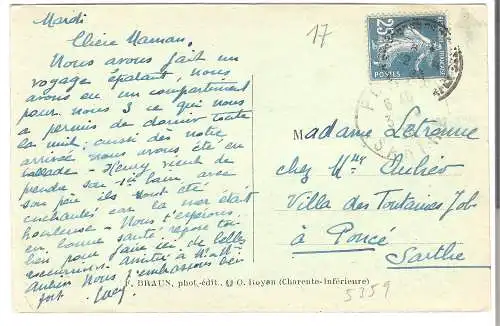 Mardi
Chère Maman,
Nous avons fait un
voyage épatant, nous
avons eu un compartiment
pour nous 3 ce qui nous
a permis de dormir toute
la nuit; aussi dès notre
arrivée nous avons été en
ballade - Henry vient de
prendre son 1er bain avec
son père ils sont été
enchantés car la mer était
houleuse - Nous t'espérons
en bonne santé, repose toi
bien pour faire ici de belles
excursions. Amitiés à
Nous t'embrassons bien
fort.
17
25
POSTES
Madame Letronne
chez Mme
Villa des Fontaines
à Poncé
Sarthe
F. BRAUN, phot.-édit., O. Royan (Charente-Inférieure)
5359